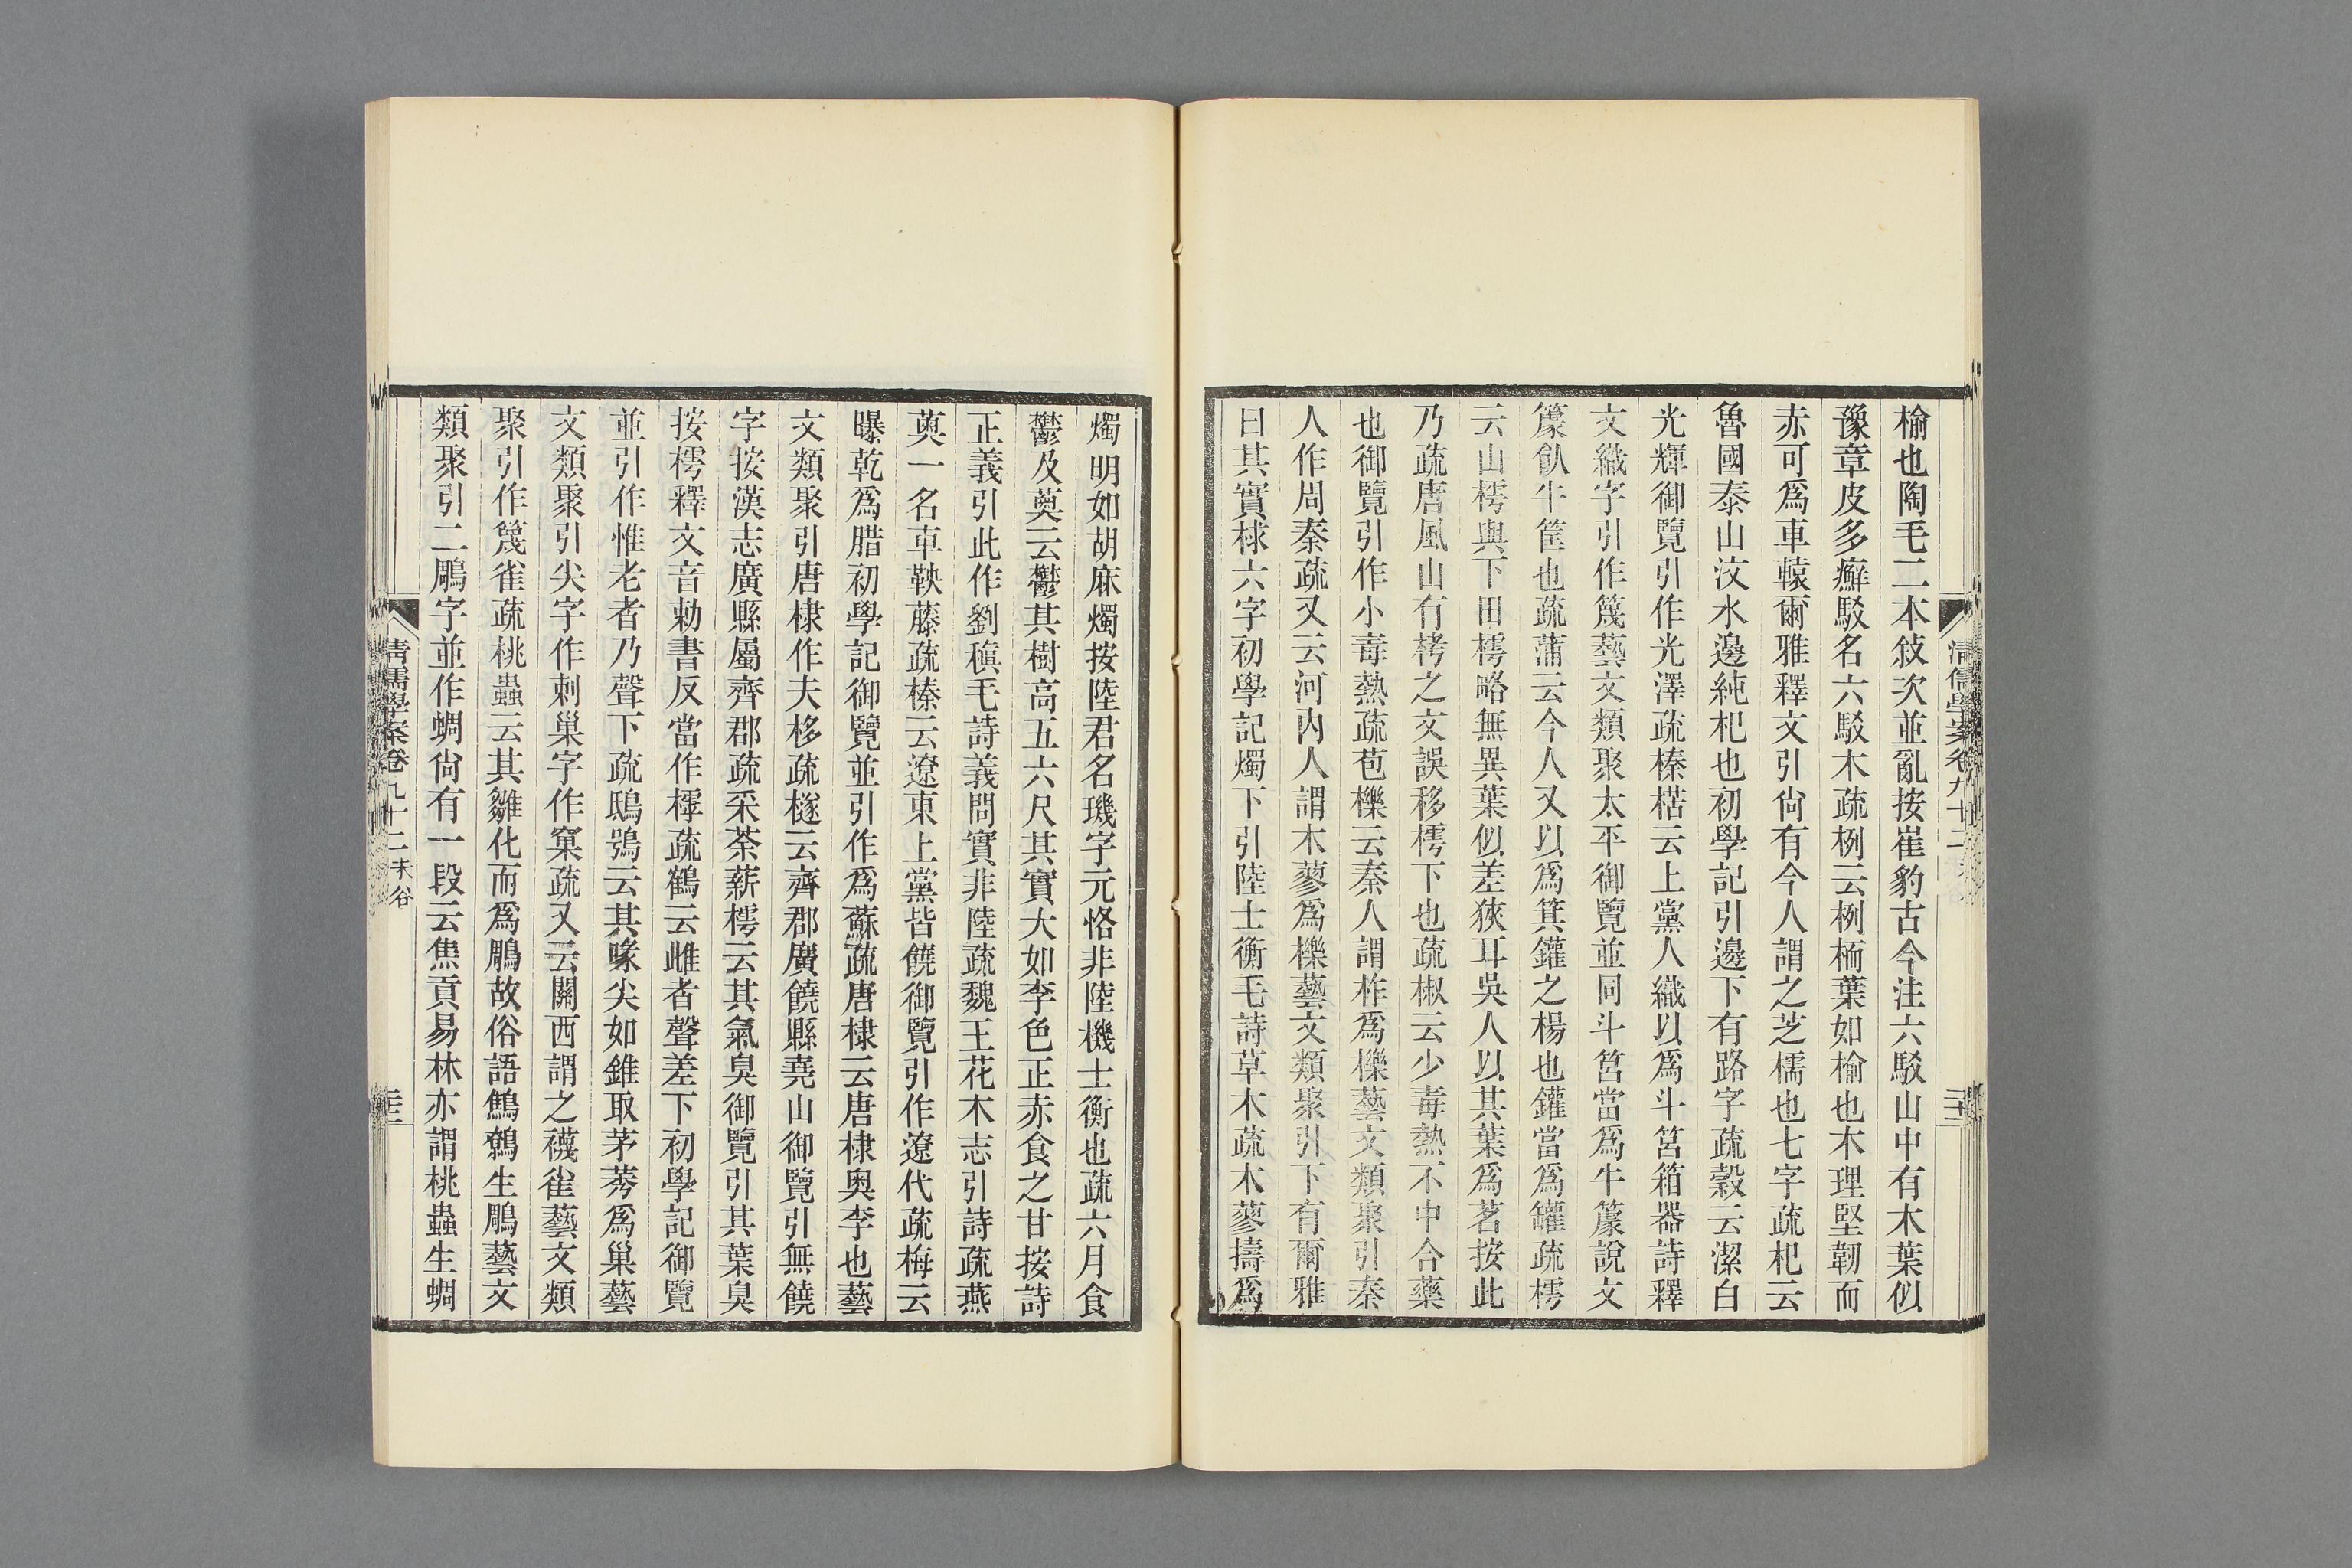 榆也陶毛二本敍次並亂按崔豹古今注六駁山中有木葉似
豫章皮多癬駁名六駁木疏栵云栵栭葉如榆也木理堅韌而
赤可爲車轅爾雅釋文引尙有今人謂之芝檽也七字疏杞云
魯國泰山汶水邊純杞也初學記引邊下有路字疏榖云潔白
光輝御覽引作光澤疏榛楛云上黨人織以爲斗筥箱器詩釋
文織字引作篾藝文類聚太平御覽並同斗筥當爲牛籇說文
籇飤牛筐也疏蒲云今人又以爲箕鑵之楊也鑵當爲罐疏樗
云山樗與下田樗略無異葉似差狹耳吳人以其葉爲茗按此
乃疏唐風山有栲之文誤移樗下也疏椒云少毒熱不中合藥
也御覽引作小毒熱疏苞櫟云秦人謂柞爲櫟藝文類聚引秦
人作周秦疏又云河內人謂木蓼爲櫟藝文類聚引下有爾雅
曰其實梂六字初學記燭下引陸士衡毛詩草木疏木蓼擣爲
燭明如胡麻燭按陸君名璣字元恪非陸機士衡也疏六月食
鬱及薁云鬱其樹高五六尺其實大如李色正赤食之甘按詩
正義引此作劉稹毛詩義問實非陸疏魏王花木志引詩疏燕
薁一名車鞅藤疏榛云遼東上黨皆饒御覽引作遼代疏梅云
曝乾爲腊初學記御覽並引作爲蘇疏唐棣云唐棣奧李也藝
文類聚引唐棣作夫栘疏檖云齊郡廣饒縣堯山御覽引無饒
字按漢志廣縣屬齊郡疏采荼薪樗云其氣臭御覽引其葉臭
按樗釋文音勅書反當作檴疏鶴云雌者聲差下初學記御覽
並引作惟老者乃聲下疏鴟鴞云其喙尖如錐取茅莠爲巢藝
文類聚引尖字作刺巢字作窠疏又云關西謂之襪雀藝文類
聚引作篾雀疏桃蟲云其雛化而爲鵰故俗語鷦鷯生鵰藝文
類聚引二鵰字並作蜩尙有一段云焦貢易林亦謂桃蟲生蜩
清儒學案卷九十二 未谷